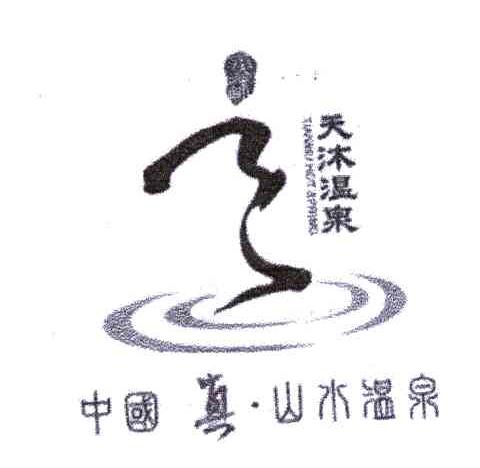 天沐温泉
TIANMU HOT SPRING
中國 真·山水温泉